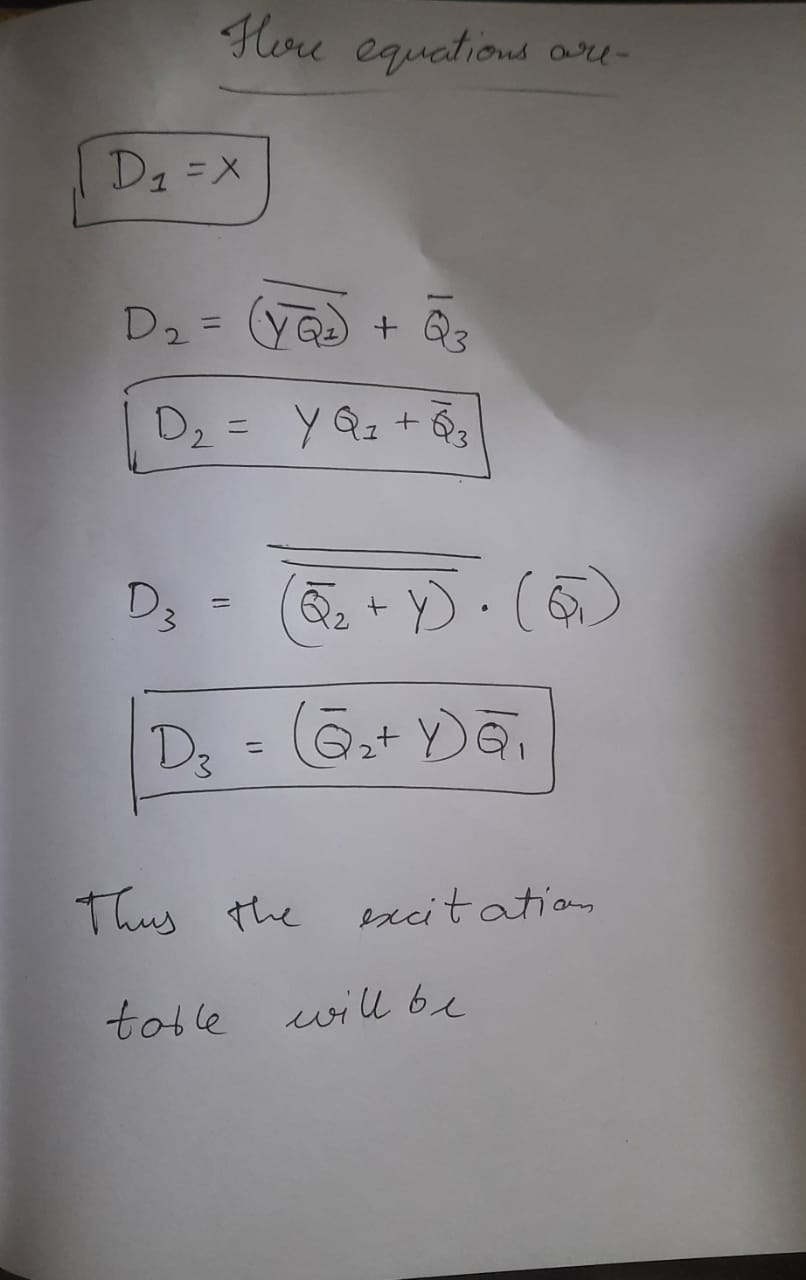 Here equations are-
D₁ = X
D₂ = \overline{(Y\overline{Q₁})} + \overline{Q}₃
D₂ = Y Q₁ + \overline{Q}₃
D₃ = \overline{\overline{(\overline{Q}₂ + Y)} · (\overline{Q}₁)}
D₃ = (\overline{Q}₂ + Y) \overline{Q}₁
Thus the excitation
table will be